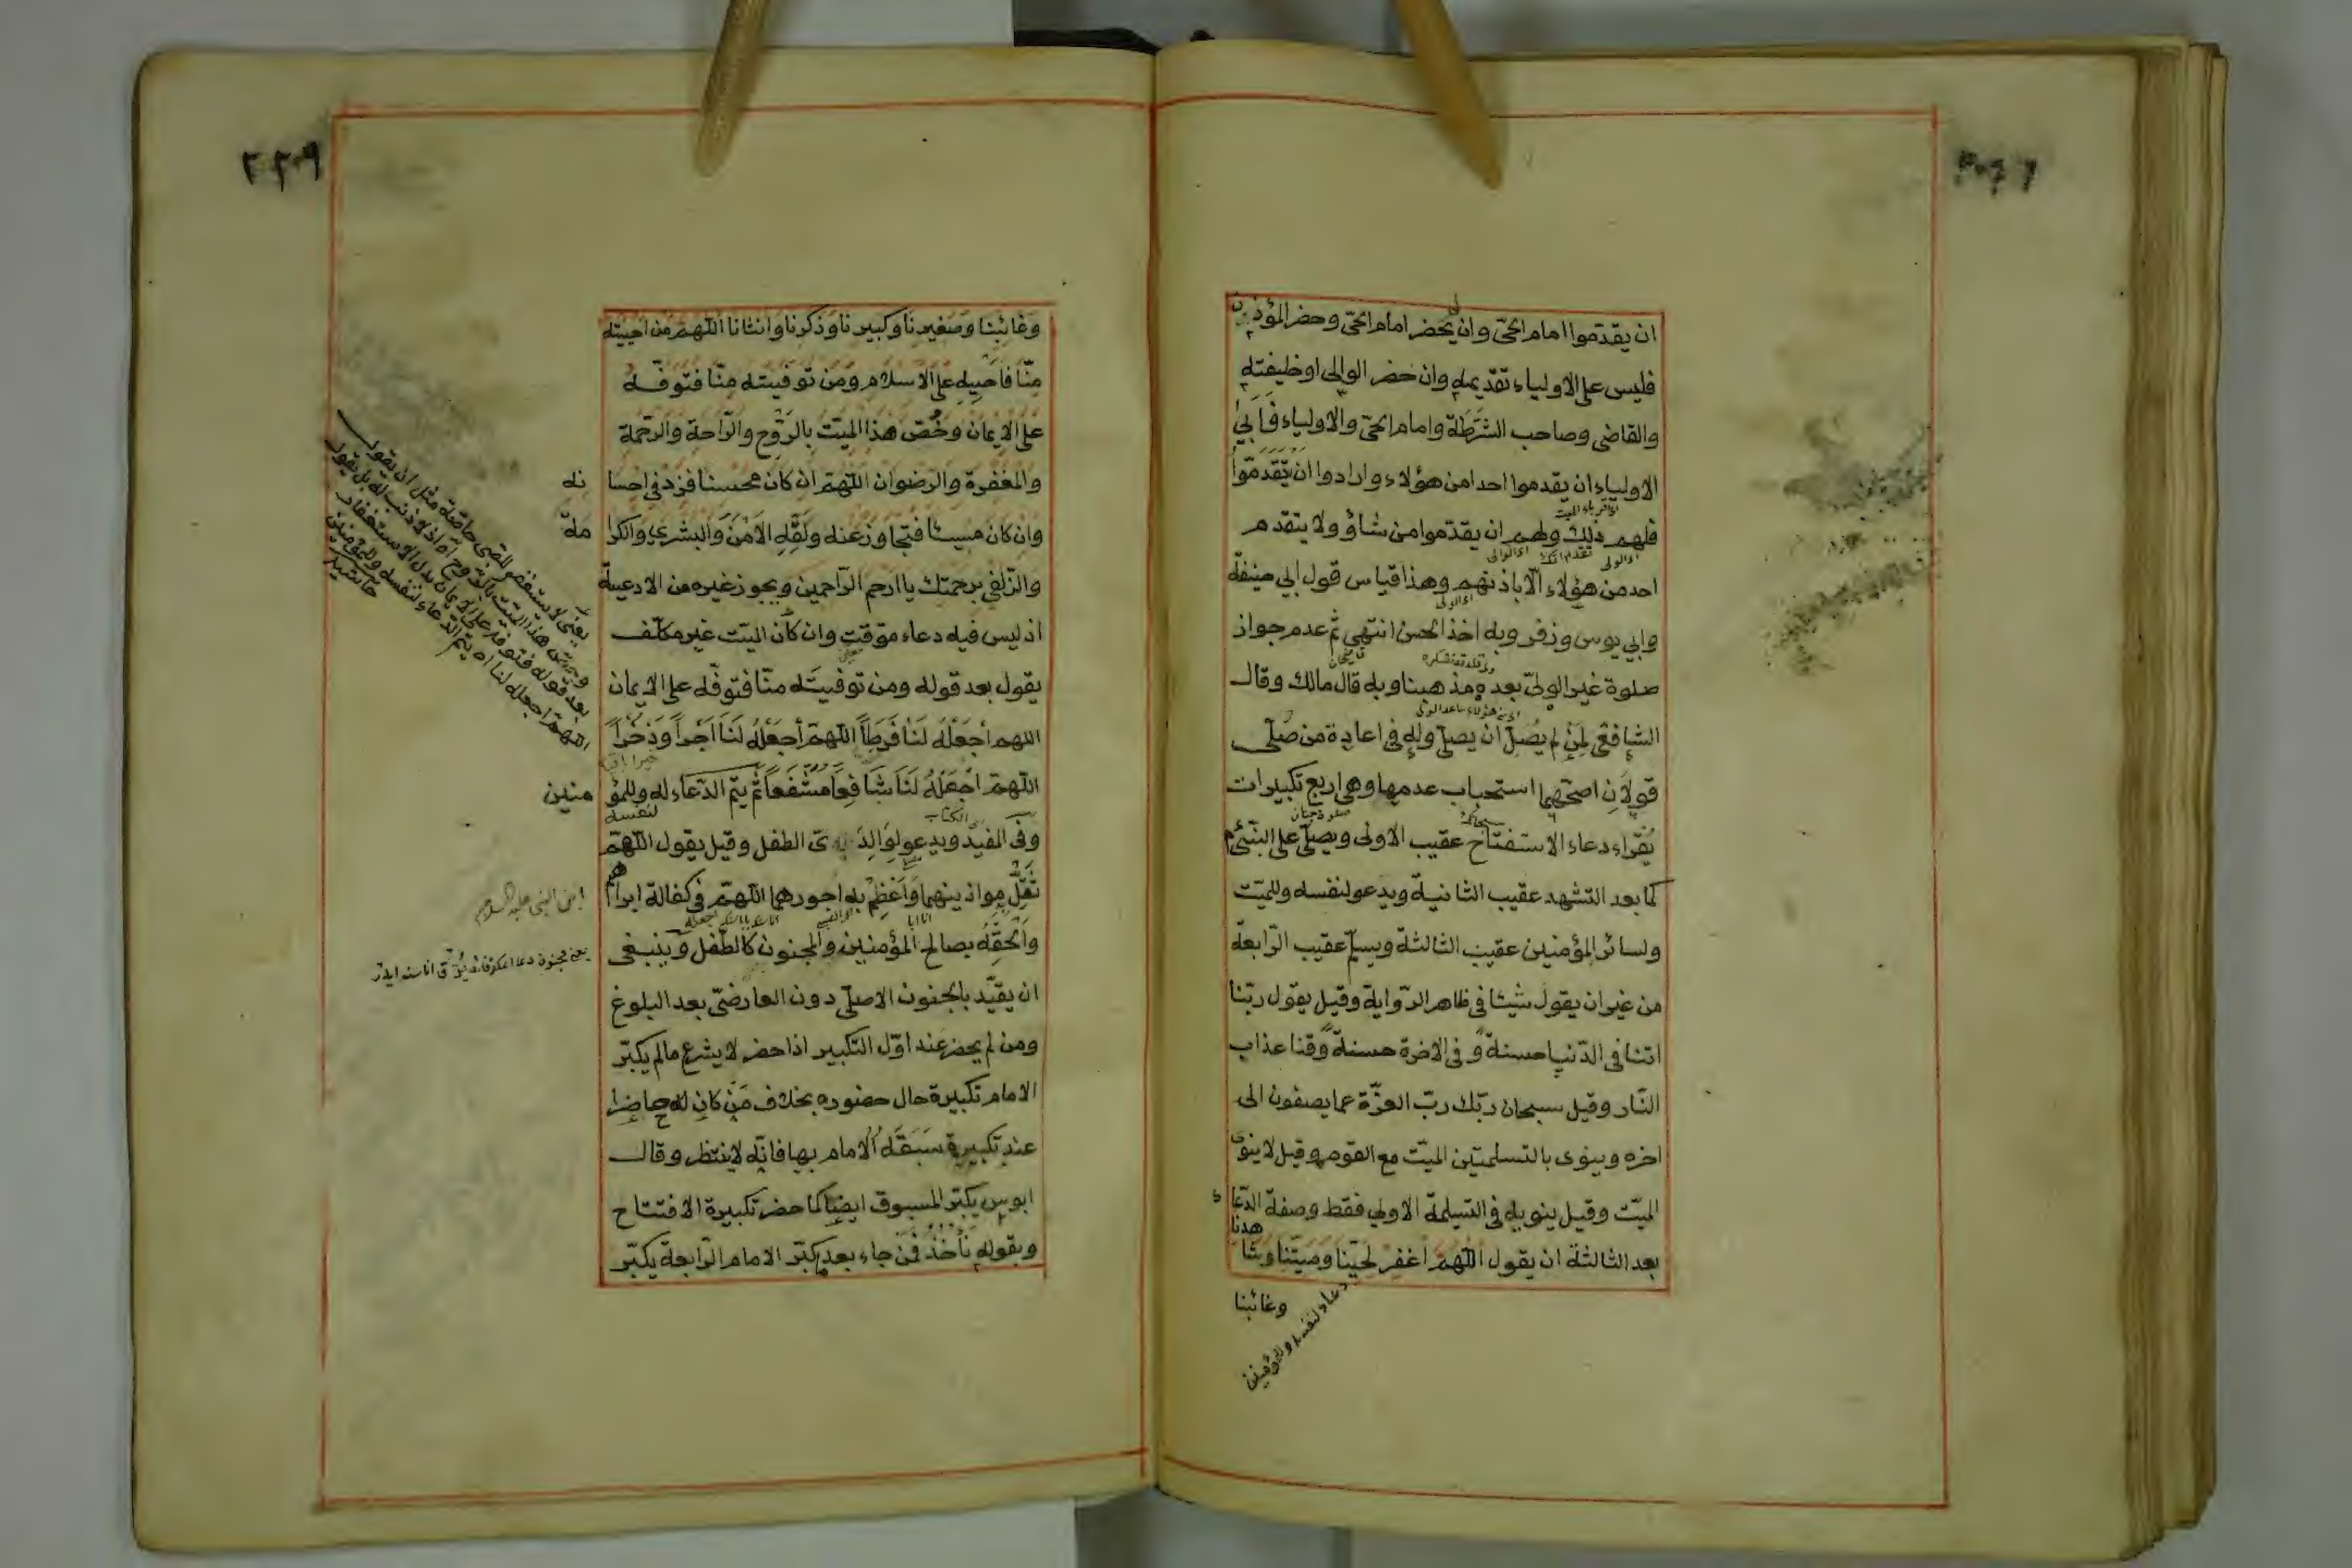 ان يقدموا امام الحى وان يحضر امام الحى وحضر المؤذن
فليس على الاولياء تقديمه وان حضر الوالى او خليفته
والقاضى وصاحب الشرطة وامام الحىّ والاولياء فَاَبىٰ
الاولياء ان يقدموا احدا من هؤلاء وارادوا ان يتقدموا
فلهم ذلك ولهم ان يقدّموا من شاؤ ولا يتقدم
احد من هؤلاء الّا باذنهم وهذا قياس قول ابى حنيفة
وابى يوس وزفر وبه اخذ الحسن انتهى ثم عدم جواز
صلوة غير الولىّ بعده مذهبنا وبه قال مالك وقال
الشافعى لِمَنْ لم يُصَلّ ان يصلّى وله فى اعادة من صلّى
قولَانِ اصحّهما استحباب عدمها وهى اربع تكبيرات
يُقرَاء دعاء الاستفتاح عقيب الاولى ويصلّى على النبىّ
كما بعد التشهد عقيب الثانية ويدعو لنفسه وللميّت
ولسائر المؤمنين عقيب الثالثة ويسلّم عقيب الرّابعة
من غير ان يقول شيئا فى ظاهر الرّواية وقيل يقول ربّنا
اتنا فى الدّنيا حسنةً وفى الاخرة حسنةً وقنا عذاب
النّار وقيل سبحان ربّك ربّ العزّة عما يصفون الى
اخره وينوى بالتسلمتين الميّت مع القوم وقيل لا ينوى
الميّت وقيل ينويه فى التسلمة الاولى فقط وصفة الدّعاء
بعد الثالثة ان يقول اللّهمّ اغفر لحيّنا وميّتنا وشاهدنا
وغائبنا
دعاء لنفسه وللمؤمنين
٢٢٠٩
وغائبنا وصغيرنا وكبيرنا وذكرنا وانثانا اللّهمّ من احييته
منّا فاحييه على الاسلام ومن توفيته منّا فتوفّه
على الايمان وخُصّ هذا الميّت بالرّوح والرّاحة والرحمة
والمغفرة والرضوان اللّهمّ ان كان محسنا فزد فى احسانه
وان كان مسيئا فتجاوز عنه ولقّه الامن والبشرى والكرامة
والزّلفى برحمتك يا ارحم الرّاحمين ويجوز غيره من الادعية
اذ ليس فيه دعاء موقت وان كان الميّت غير مكلّف
يقول بعد قوله ومن توفيته منّا فتوفّه على الايمان
اللهم اجعله لنا فرطاً اللّهمّ اجعله لنا اجراً وذخراً
اللّهمّ اجعله لنا شافعاً مشفّعاً ثم يتمّ الدّعاء له وللمؤمنين
وفى المفيد ويدعو لوالدى الطفل وقيل يقول اللّهمّ
ثقّل موازينهما واعظم به اجورهما اللّهمّ فى كفالة ابراهيم
والحقه بصالح المؤمنين والمجنون كالطّفل وينبغى
ان يقيّد بالجنون الاصلّى دون العارضىّ بعد البلوغ
ومن لم يحضر عند اوّل التكبير اذا حضر لا يشرع مالم يكبّر
الامام تكبيرة حال حضوره بخلاف من كان حاضرا
عند تكبيرة سبقه الامام بها فانّه لا ينتظر وقال
ابو يس يكبّر المسبوق ايضا كما حضر تكبيرة الافتتاح
وبقوله نأخذ فمن جاء بعد كبّر الامام الرّابعة يكبّر
يعنى لا يستغفر للصبى خاصّة مثل ان يقول
بعد قوله فتوفه على الايمان بدل الاستغفار
اللهمّ اجعله لنا اه يتمّ الدّعاء لنفسه وللمؤمنين
ابن النبى عليه السلام